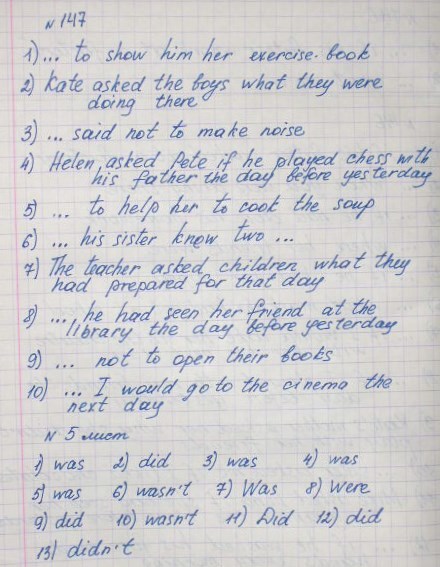 N 147
1) ... to show him her exercise-book
2) Kate asked the boys what they were
doing there
3) ... said not to make noise
4) Helen asked Pete if he played chess with
his father the day before yesterday
5) ... to help her to cook the soup
6) ... his sister know two ...
7) The teacher asked children what they
had prepared for that day
8) ... he had seen her friend at the
library the day before yesterday
9) ... not to open their books
10) ... I would go to the cinema the
next day
N 5 лист
1) was 2) did 3) was 4) was
5) was 6) wasn't 7) Was 8) Were
9) did 10) wasn't 11) Did 12) did
13) didn't